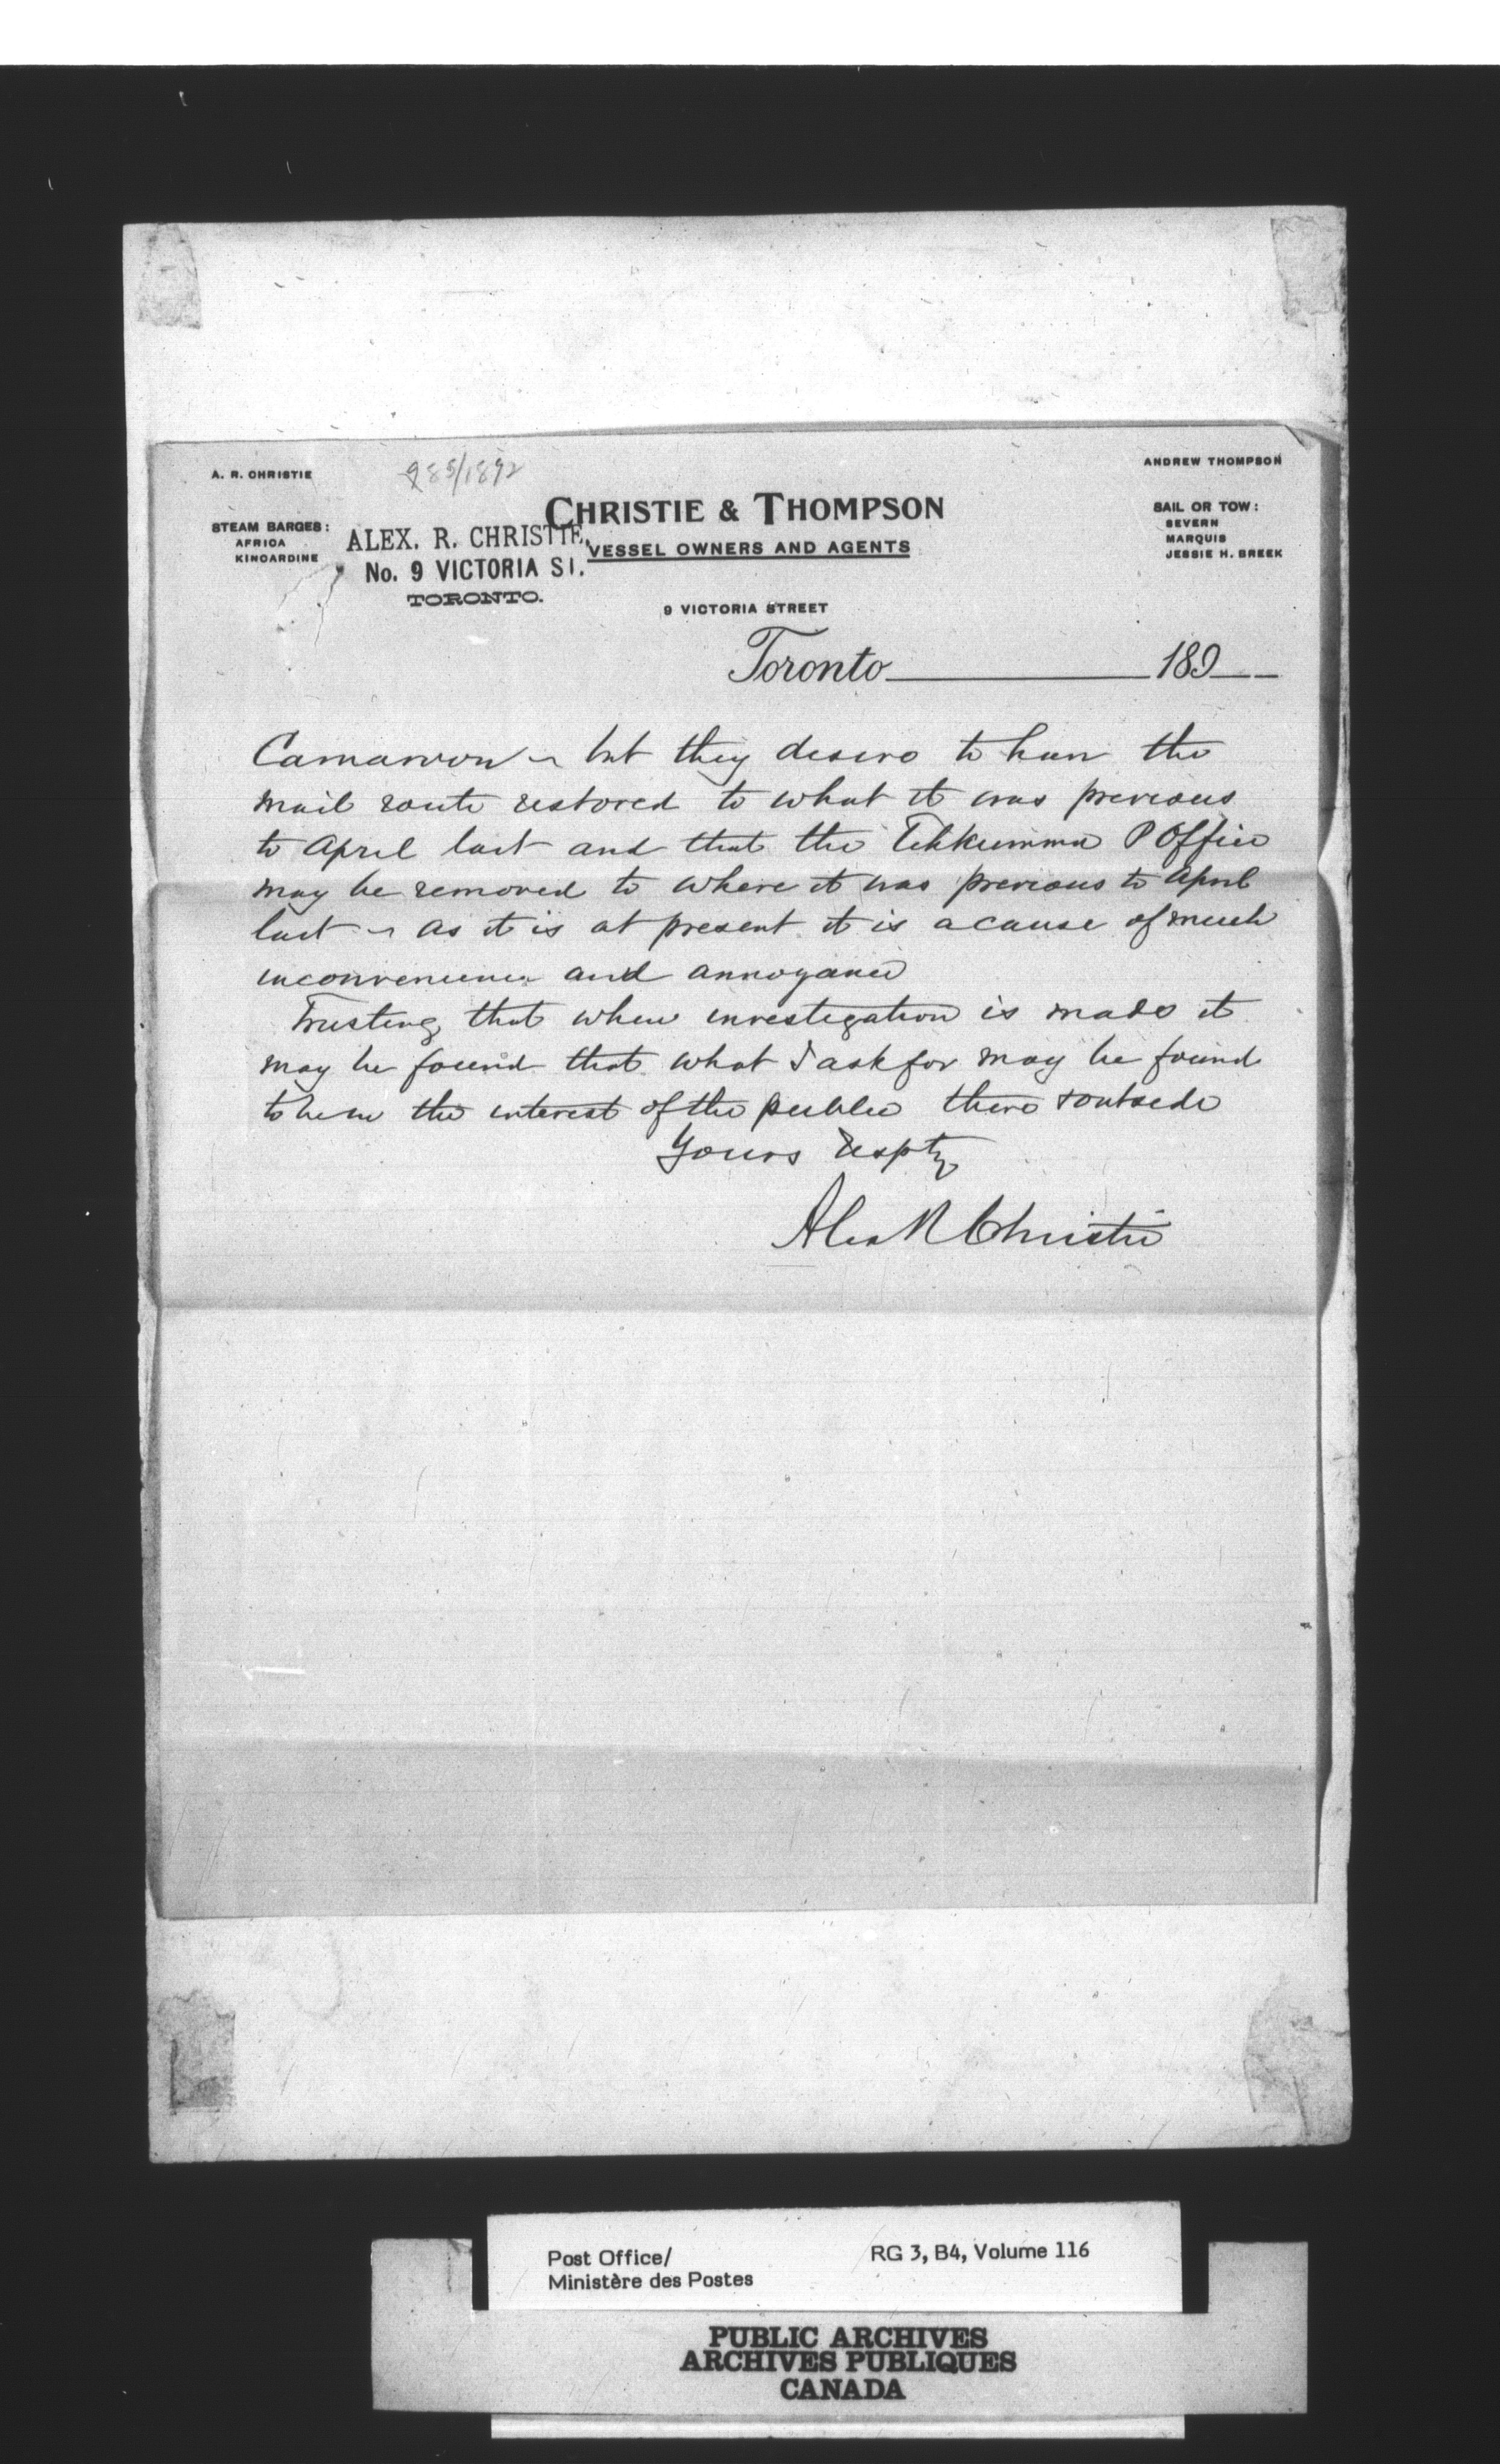 985/1892
A. R. CHRISTIE
ANDREW THOMPSON
CHRISTIE & THOMPSON
STEAM BARGES:
AFRICA
KINCARDINE
ALEX. R. CHRISTIE,
No. 9 VICTORIA ST.
TORONTO.
VESSEL OWNERS AND AGENTS
SAIL OR TOW:
SEVERN
MARQUIS
JESSIE H. BREEK
9 VICTORIA STREET
Toronto 189
Carnarvon - but they desire to have the
mail route restored to what it was previous
to April last and that the Tehkumma P Office
may be removed to where it was previous to April
last - as it is at present it is a cause of much
inconvenience and annoyance
Trusting that when investigation is made it
may be found that what I ask for may be found
to be in the interest of the public there & outside
Yours Respty
Alex R Christie
Post Office/
Ministère des Postes
RG 3, B4, Volume 116
PUBLIC ARCHIVES
ARCHIVES PUBLIQUES
CANADA